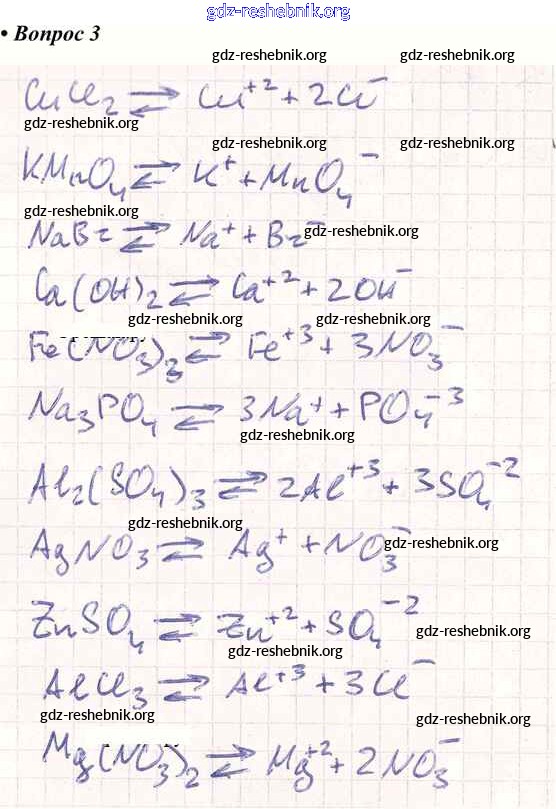 gdz-reshebnik.org
• Вопрос 3
gdz-reshebnik.org gdz-reshebnik.org
CuCl₂ ⇄ Cu⁺² + 2Cl⁻
gdz-reshebnik.org
gdz-reshebnik.org gdz-reshebnik.org
KMnO₄ ⇄ K⁺ + MnO₄⁻
gdz-reshebnik.org
NaBr ⇄ Na⁺ + Br⁻ gdz-reshebnik.org
Ca(OH)₂ ⇄ Ca⁺² + 2OH⁻
gdz-reshebnik.org gdz-reshebnik.org
Fe(NO₃)₃ ⇄ Fe⁺³ + 3NO₃⁻
Na₃PO₄ ⇄ 3Na⁺ + PO₄⁻³
gdz-reshebnik.org
Al₂(SO₄)₃ ⇄ 2Al⁺³ + 3SO₄⁻²
gdz-reshebnik.org
AgNO₃ ⇄ Ag⁺ + NO₃⁻ gdz-reshebnik.org
ZnSO₄ ⇄ Zn⁺² + SO₄⁻² gdz-reshebnik.org
gdz-reshebnik.org
AlCl₃ ⇄ Al⁺³ + 3Cl⁻
gdz-reshebnik.org gdz-reshebnik.org
Mg(NO₃)₂ ⇄ Mg⁺² + 2NO₃⁻